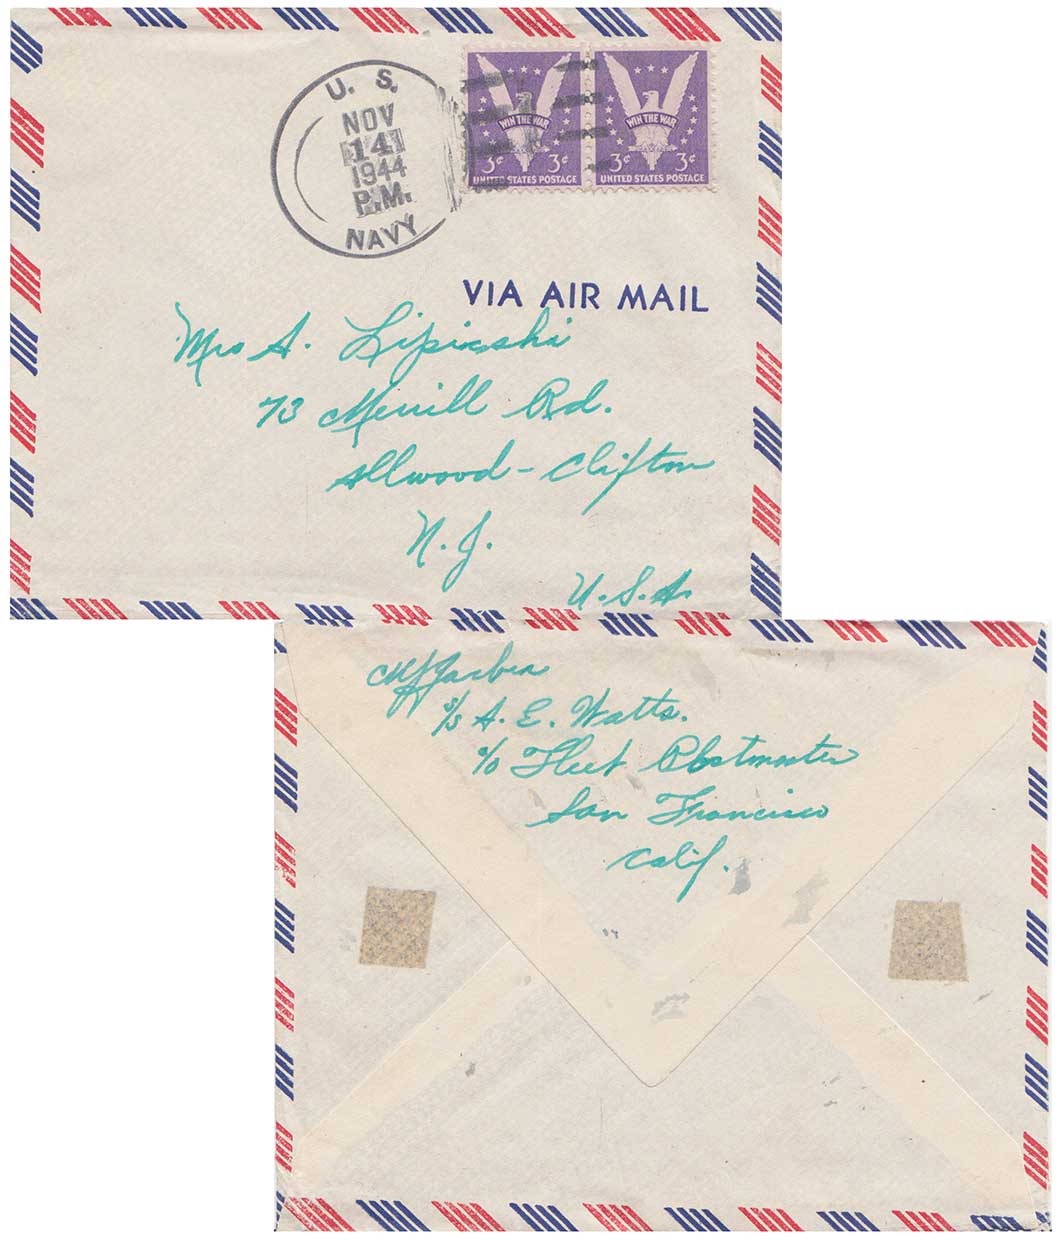 U. S.
NOV
14
1944
P.M.
NAVY
WIN THE WAR
3¢ 3¢
UNITED STATES POSTAGE
WIN THE WAR
3¢ 3¢
UNITED STATES POSTAGE
VIA AIR MAIL
Mrs A.
73 Merrill Rd.
Allwood - Clifton
N. J.
U.S.A.
S/S A. E. Watts.
c/o Fleet Postmaster
San Francisco
Calif.